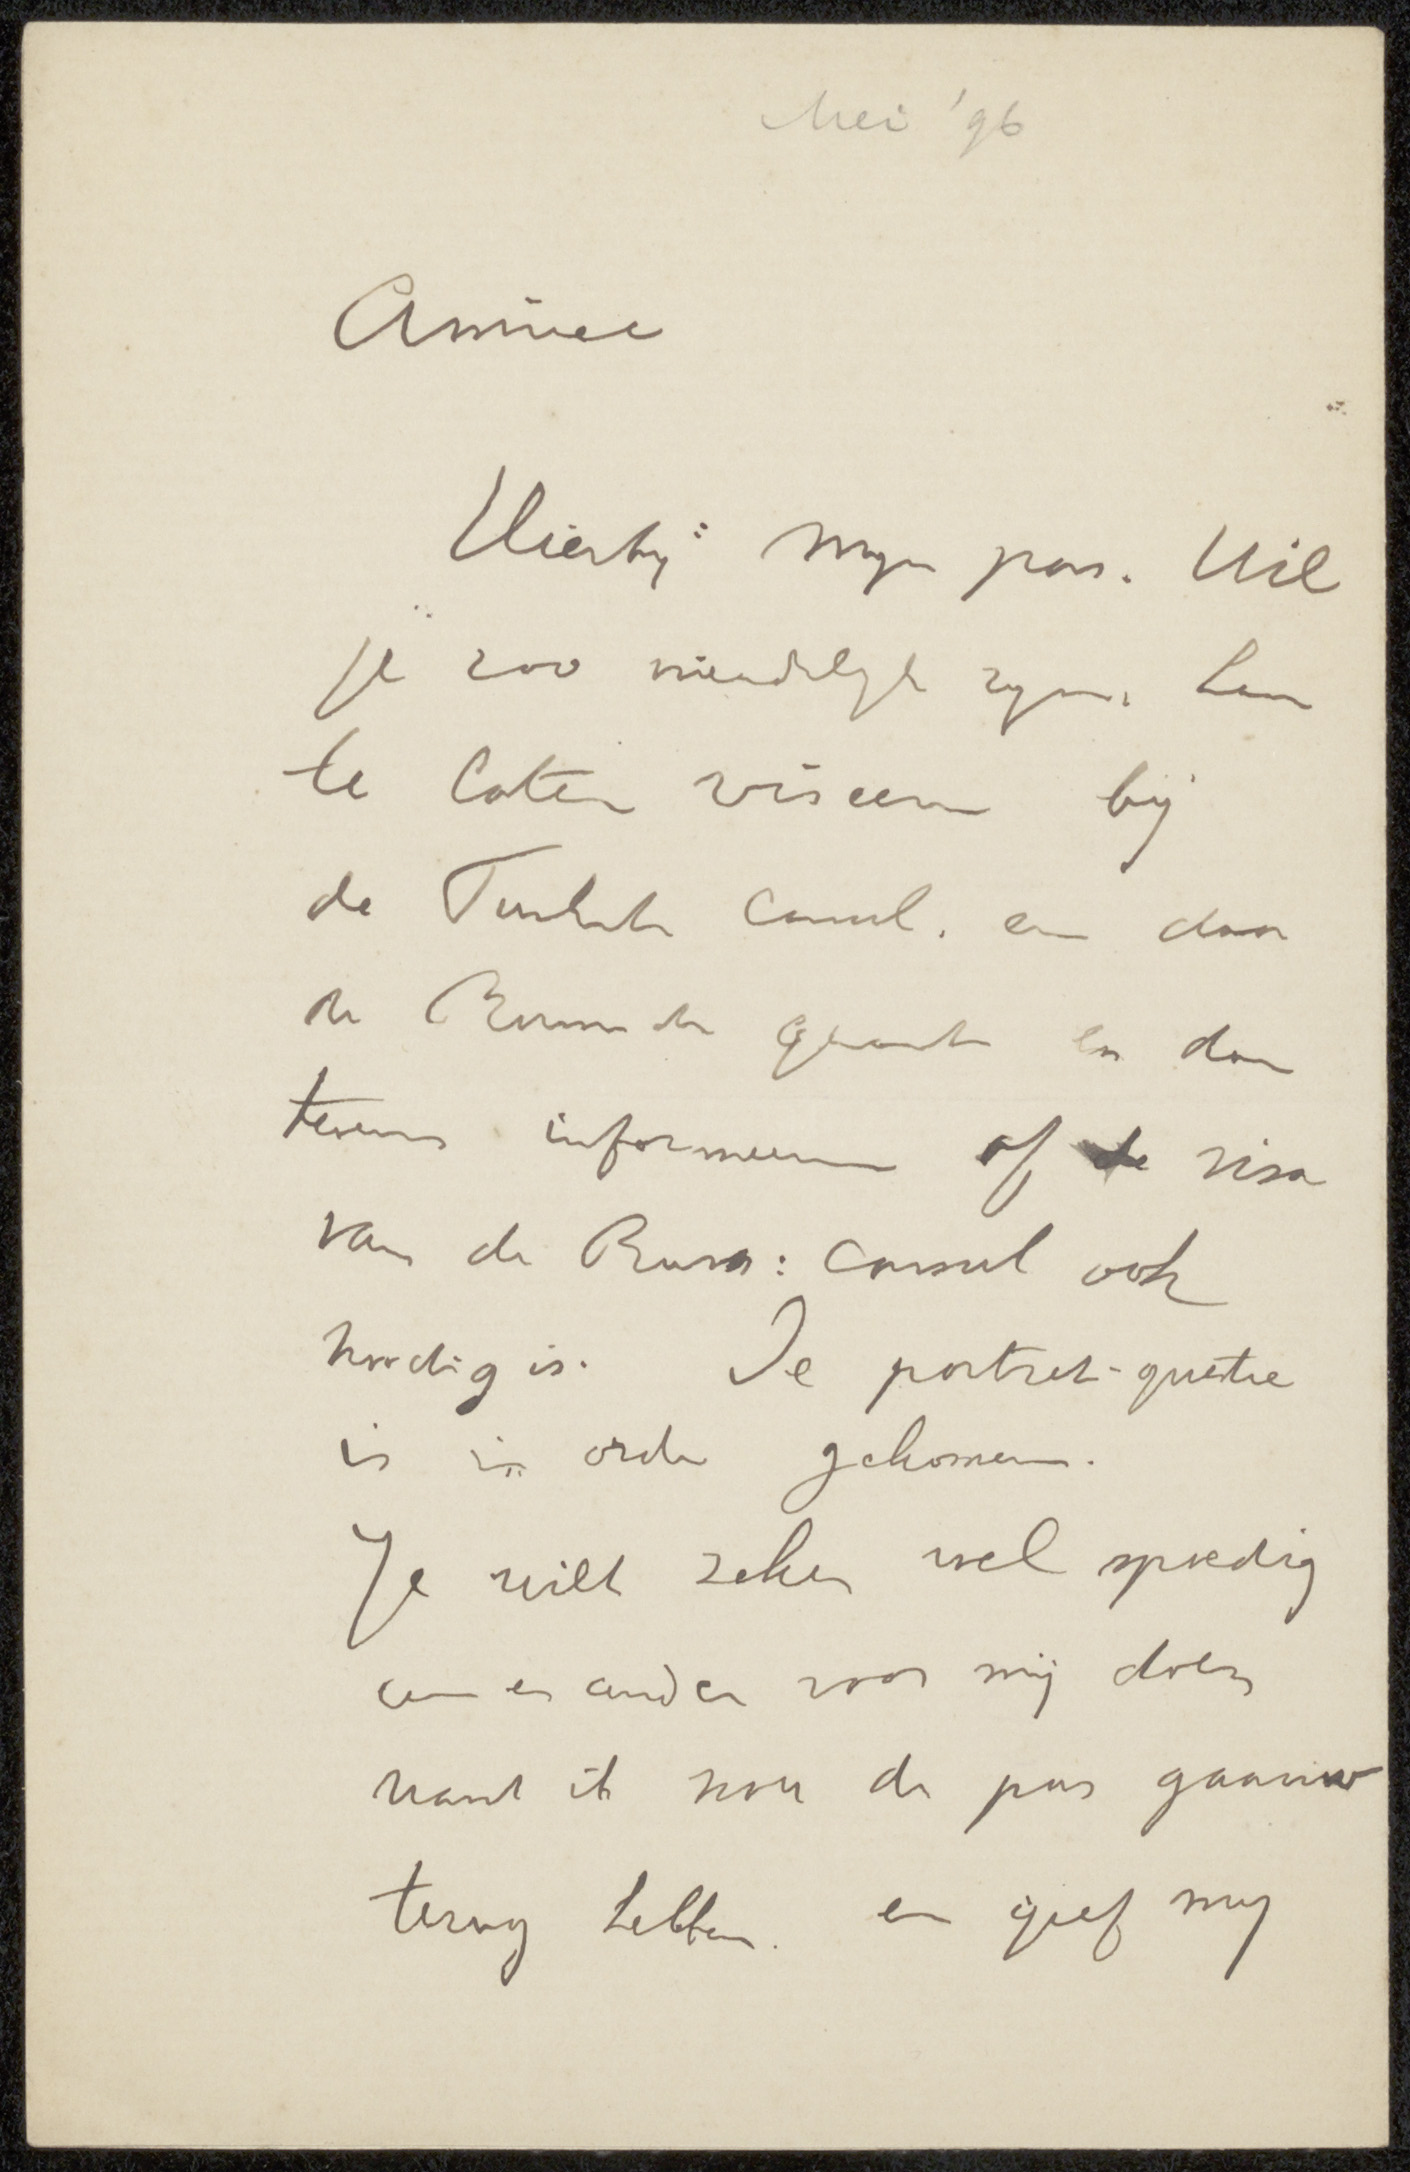 Mei '96
Amice
Hierbij mijn pas. Wil
je zoo vriendelijk zijn, hem
te laten viseeren bij
de Turksche Consul. en daar
de
tevens informeeren of de visa
van de Russ: consul ook
noodig is. De portret-quaestie
is in orde gekomen.
Je wilt zeker wel spoedig
een en ander voor mij doen
want ik wou de pas gaauw
terug hebben. en geef mij